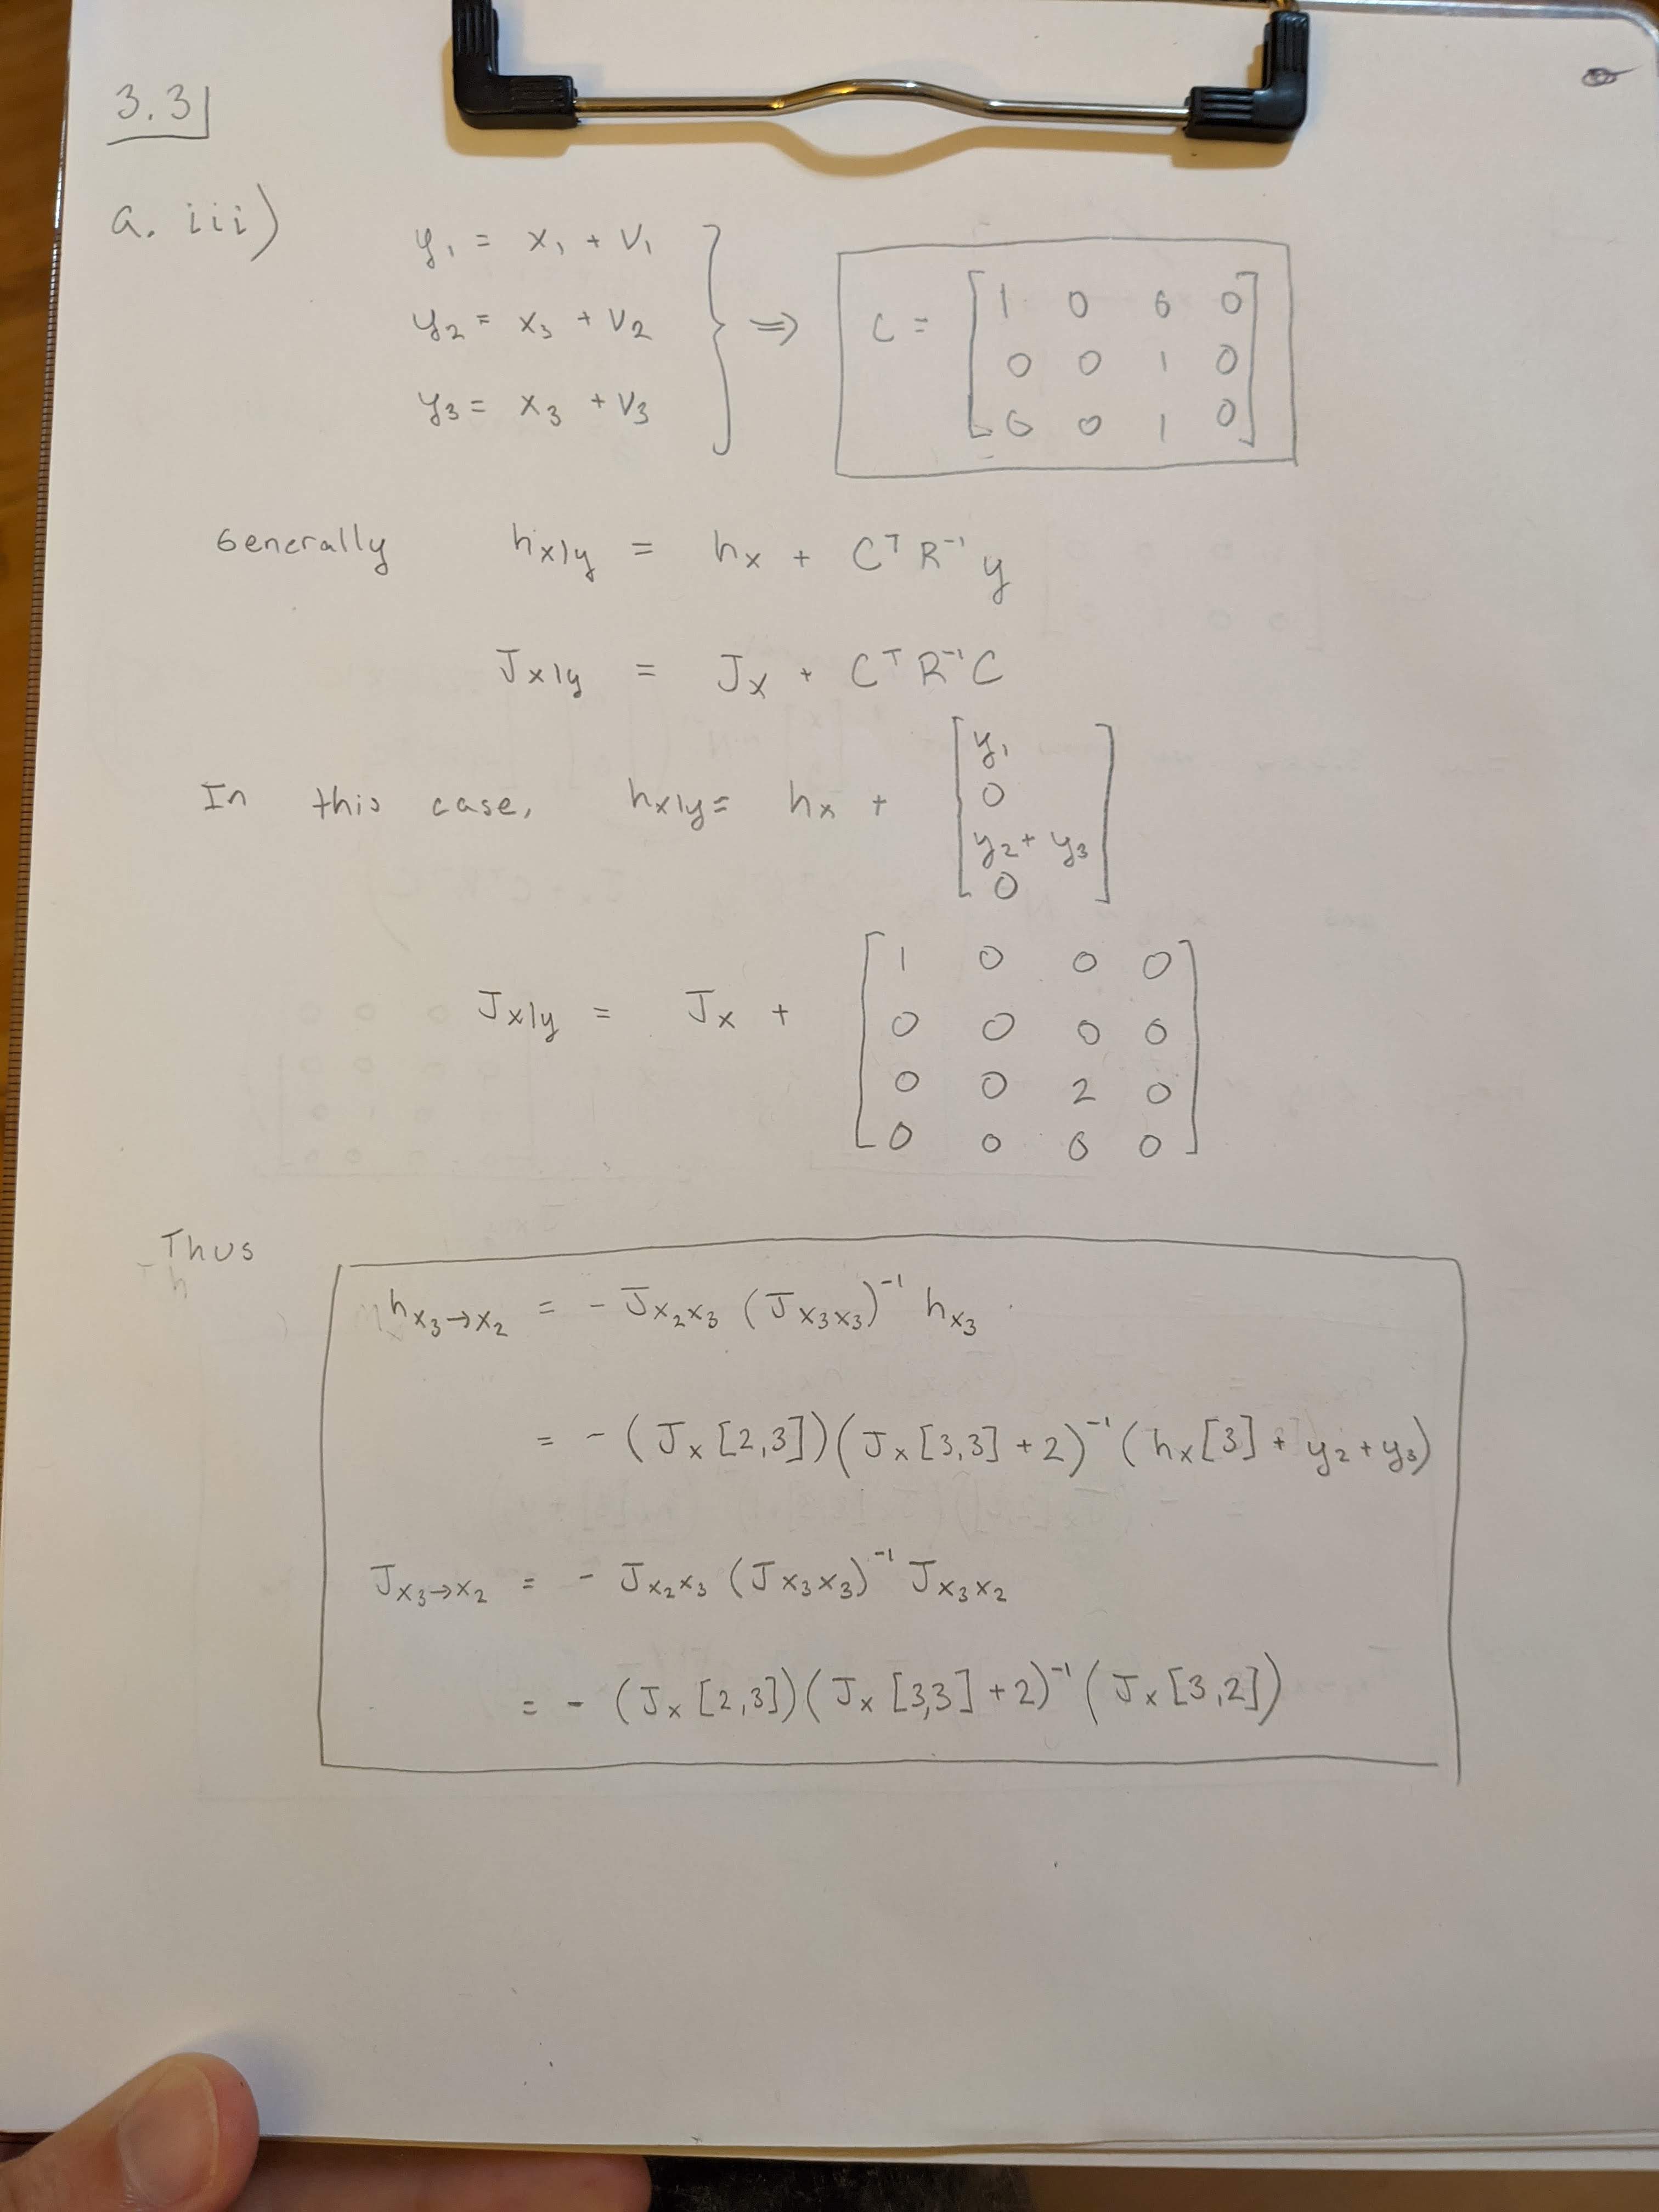 3.3
a. iii)
y₁ = x₁ + v₁
y₂ = x₃ + v₂
y₃ = x₃ + v₃
} ⇒ C = [1 0 0 0
0 0 1 0
0 0 1 0]
Generally h_{x|y} = h_x + Cᵀ R⁻¹ y
J_{x|y} = J_x + Cᵀ R⁻¹ C
In this case, h_{x|y} = h_x + [y₁
0
y₂ + y₃
0]
J_{x|y} = J_x + [1 0 0 0
0 0 0 0
0 0 2 0
0 0 0 0]
Thus
h_{x₃→x₂} = - J_{x₂x₃} (J_{x₃x₃})⁻¹ h_{x₃}
= - (J_x [2,3])(J_x [3,3] + 2)⁻¹ (h_x [3] + y₂ + y₃)
J_{x₃→x₂} = - J_{x₂x₃} (J_{x₃x₃})⁻¹ J_{x₃x₂}
= - (J_x [2,3])(J_x [3,3] + 2)⁻¹ (J_x [3,2])